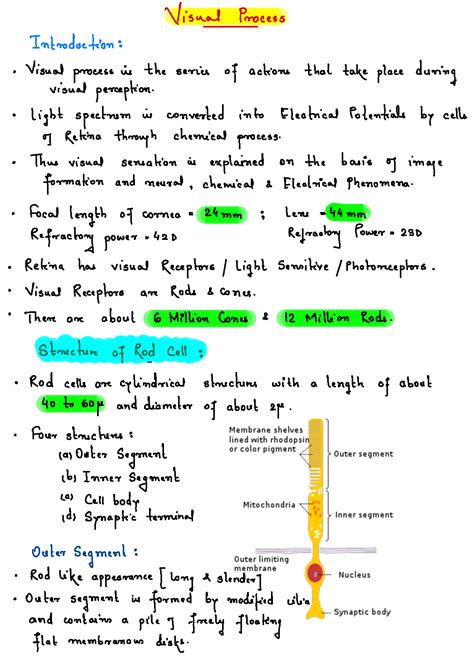 Visual Process
Introduction :
• Visual process is the series of actions that take place during
visual perception.
• Light spectrum is converted into Electrical Potentials by cells
of Retina through chemical process.
• Thus visual sensation is explained on the basis of image
formation and neural, chemical & Electrical Phenomena.
• Focal length of cornea = 24mm ; Lens = 44mm
Refractory power = 42D Refractory Power = 23D
• Retina has visual Receptors / Light Sensitive / Photoreceptors.
• Visual Receptors are Rods & Cones.
• There are about 6 Million Cones & 12 Million Rods.
Structure of Rod Cell :
• Rod cells are cylindrical structures with a length of about
40 to 60µ and diameter of about 2µ.
• Four structures :
(a) Outer Segment
(b) Inner Segment
(c) Cell body
(d) Synaptic terminal
Membrane shelves
lined with rhodopsin
or color pigment
Outer segment
Mitochondria
Inner segment
Outer limiting
membrane
Nucleus
Synaptic body
Outer Segment :
• Rod like appearance [long & slender]
• Outer segment is formed by modified cilia
and contains a pile of freely floating
flat membranous disks.